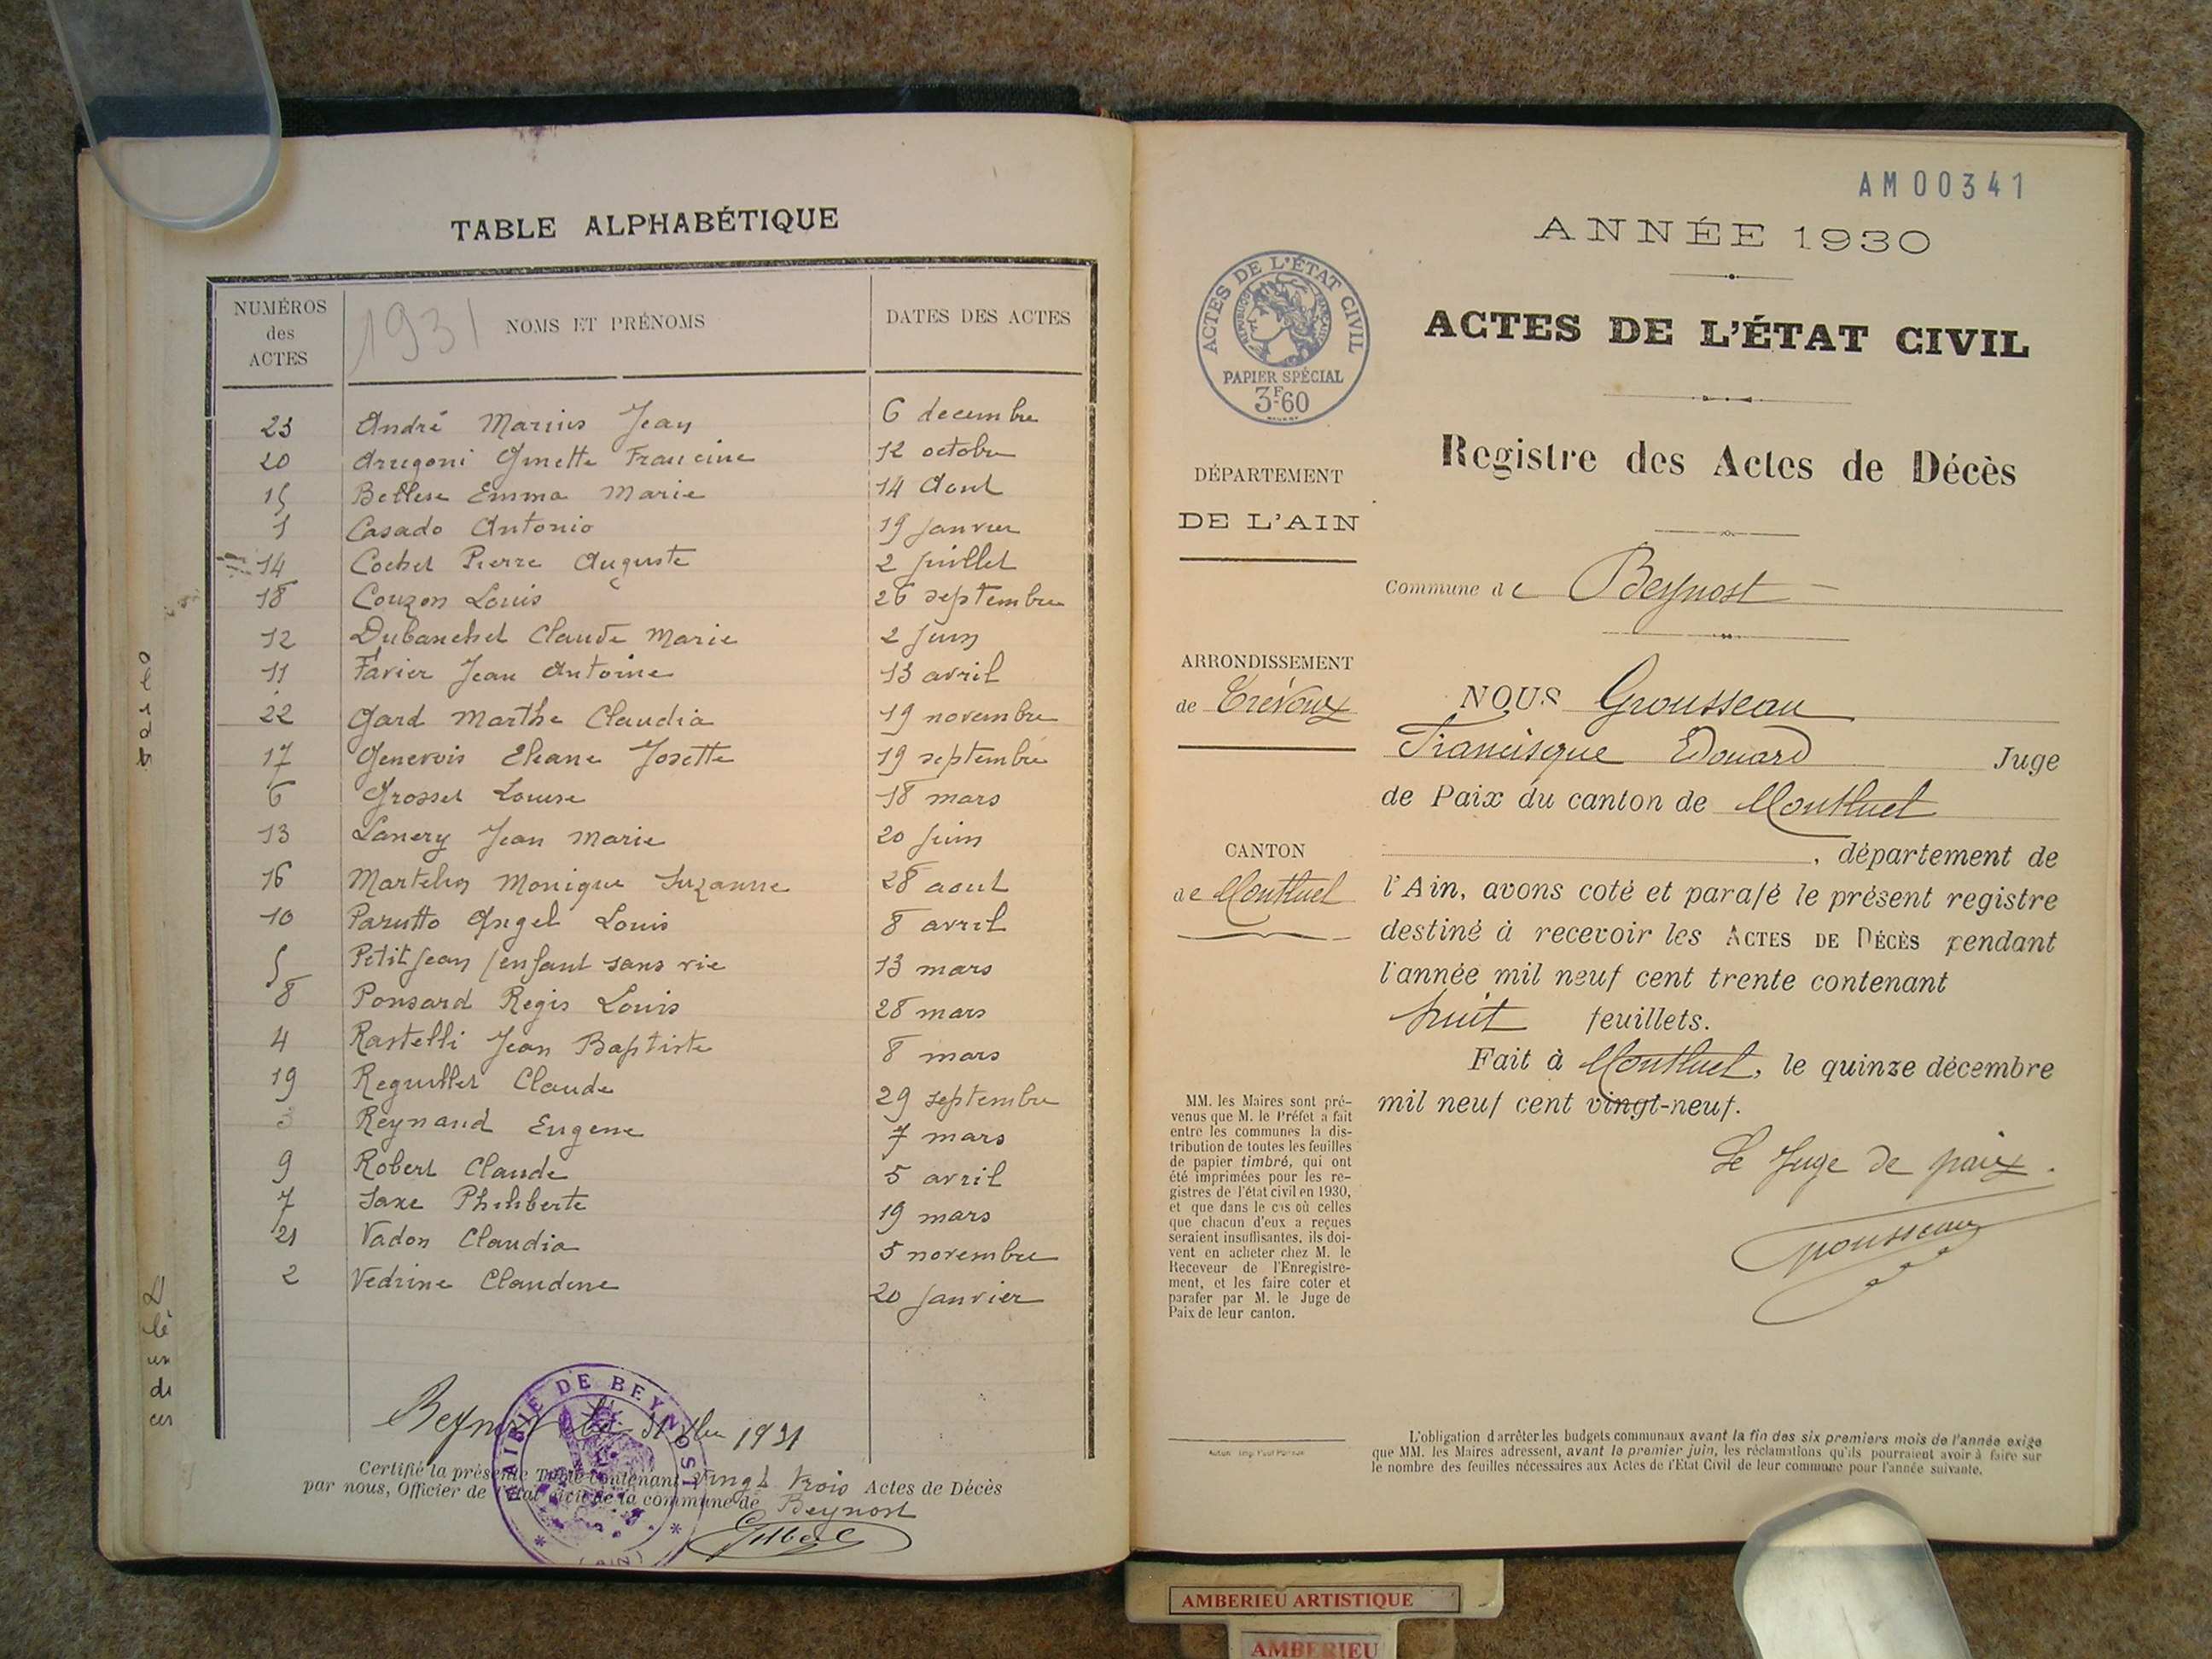 TABLE ALPHABÉTIQUE
NUMÉROS des ACTES
1931
NOMS ET PRÉNOMS
DATES DES ACTES
23 André Marius Jean 6 decembre
20 Arrigoni Ginette Francine 12 octobre
15 Emma Marie 14 Aout
1 Casado Antonio 19 janvier
14 Cochet Pierre Auguste 2 juillet
18 Couzon Louis 26 septembre
12 Dubanchet Claude Marie 2 juin
11 Favier Jean Antoine 13 avril
22 Gard Marthe Claudia 19 novembre
17 Genevois Eliane Josette 19 septembre
6 Grosset Louise 18 mars
13 Lanery Jean Marie 20 juin
16 Martelin Monique Suzanne 28 aout
10 Parutto Angel Louis 8 avril
5 Petitjean (enfant sans vie 13 mars
8 Ponsard Regis Louis 28 mars
4 Rastelli Jean Baptiste 8 mars
19 Reguillet Claude 29 septembre
3 Reynaud Eugene 7 mars
9 Robert Claude 5 avril
7 Saxe Philiberte 19 mars
21 Vadon Claudia 5 novembre
2 Vedrine Claudine 20 janvier
Beynost le 31 Xbre 1931
MAIRIE DE BEYNOST
(AIN)
Certifié la présente Table contenant vingt trois Actes de Décès
par nous, Officier de l'état civil de la commune de Beynost
AM00341
ANNÉE 1930
ACTES DE L'ÉTAT CIVIL
ACTES DE L'ÉTAT CIVIL
REPUBLIQUE FRANÇAISE
PAPIER SPÉCIAL
3F.60
Registre des Actes de Décès
DÉPARTEMENT
DE L'AIN
Commune de Beynost
ARRONDISSEMENT
de Trévoux
CANTON
de Montluel
NOUS Grousseau
Francisque Edouard Juge
de Paix du canton de Montluel
, département de
l'Ain, avons coté et parafé le présent registre
destiné à recevoir les ACTES DE DÉCÈS pendant
l'année mil neuf cent trente contenant
huit feuillets.
Fait à Montluel, le quinze décembre
mil neuf cent vingt-neuf.
Le Juge de paix.
Grousseau
MM. les Maires sont pré-
venus que M. le Préfet a fait
entre les communes la dis-
tribution de toutes les feuilles
de papier timbré, qui ont
été imprimées pour les re-
gistres de l'état civil en 1930,
et que dans le cas où celles
que chacun d'eux a reçues
seraient insuffisantes, ils doi-
vent en acheter chez M. le
Receveur de l'Enregistre-
ment, et les faire coter et
parafer par M. le Juge de
Paix de leur canton.
L'obligation d'arrêter les budgets communaux avant la fin des six premiers mois de l'année exige
que MM. les Maires adressent, avant le premier juin, les réclamations qu'ils pourraient avoir à faire sur
le nombre des feuilles nécessaires aux Actes de l'Etat Civil de leur commune pour l'année suivante.
AMBERIEU ARTISTIQUE
AMBERIEU